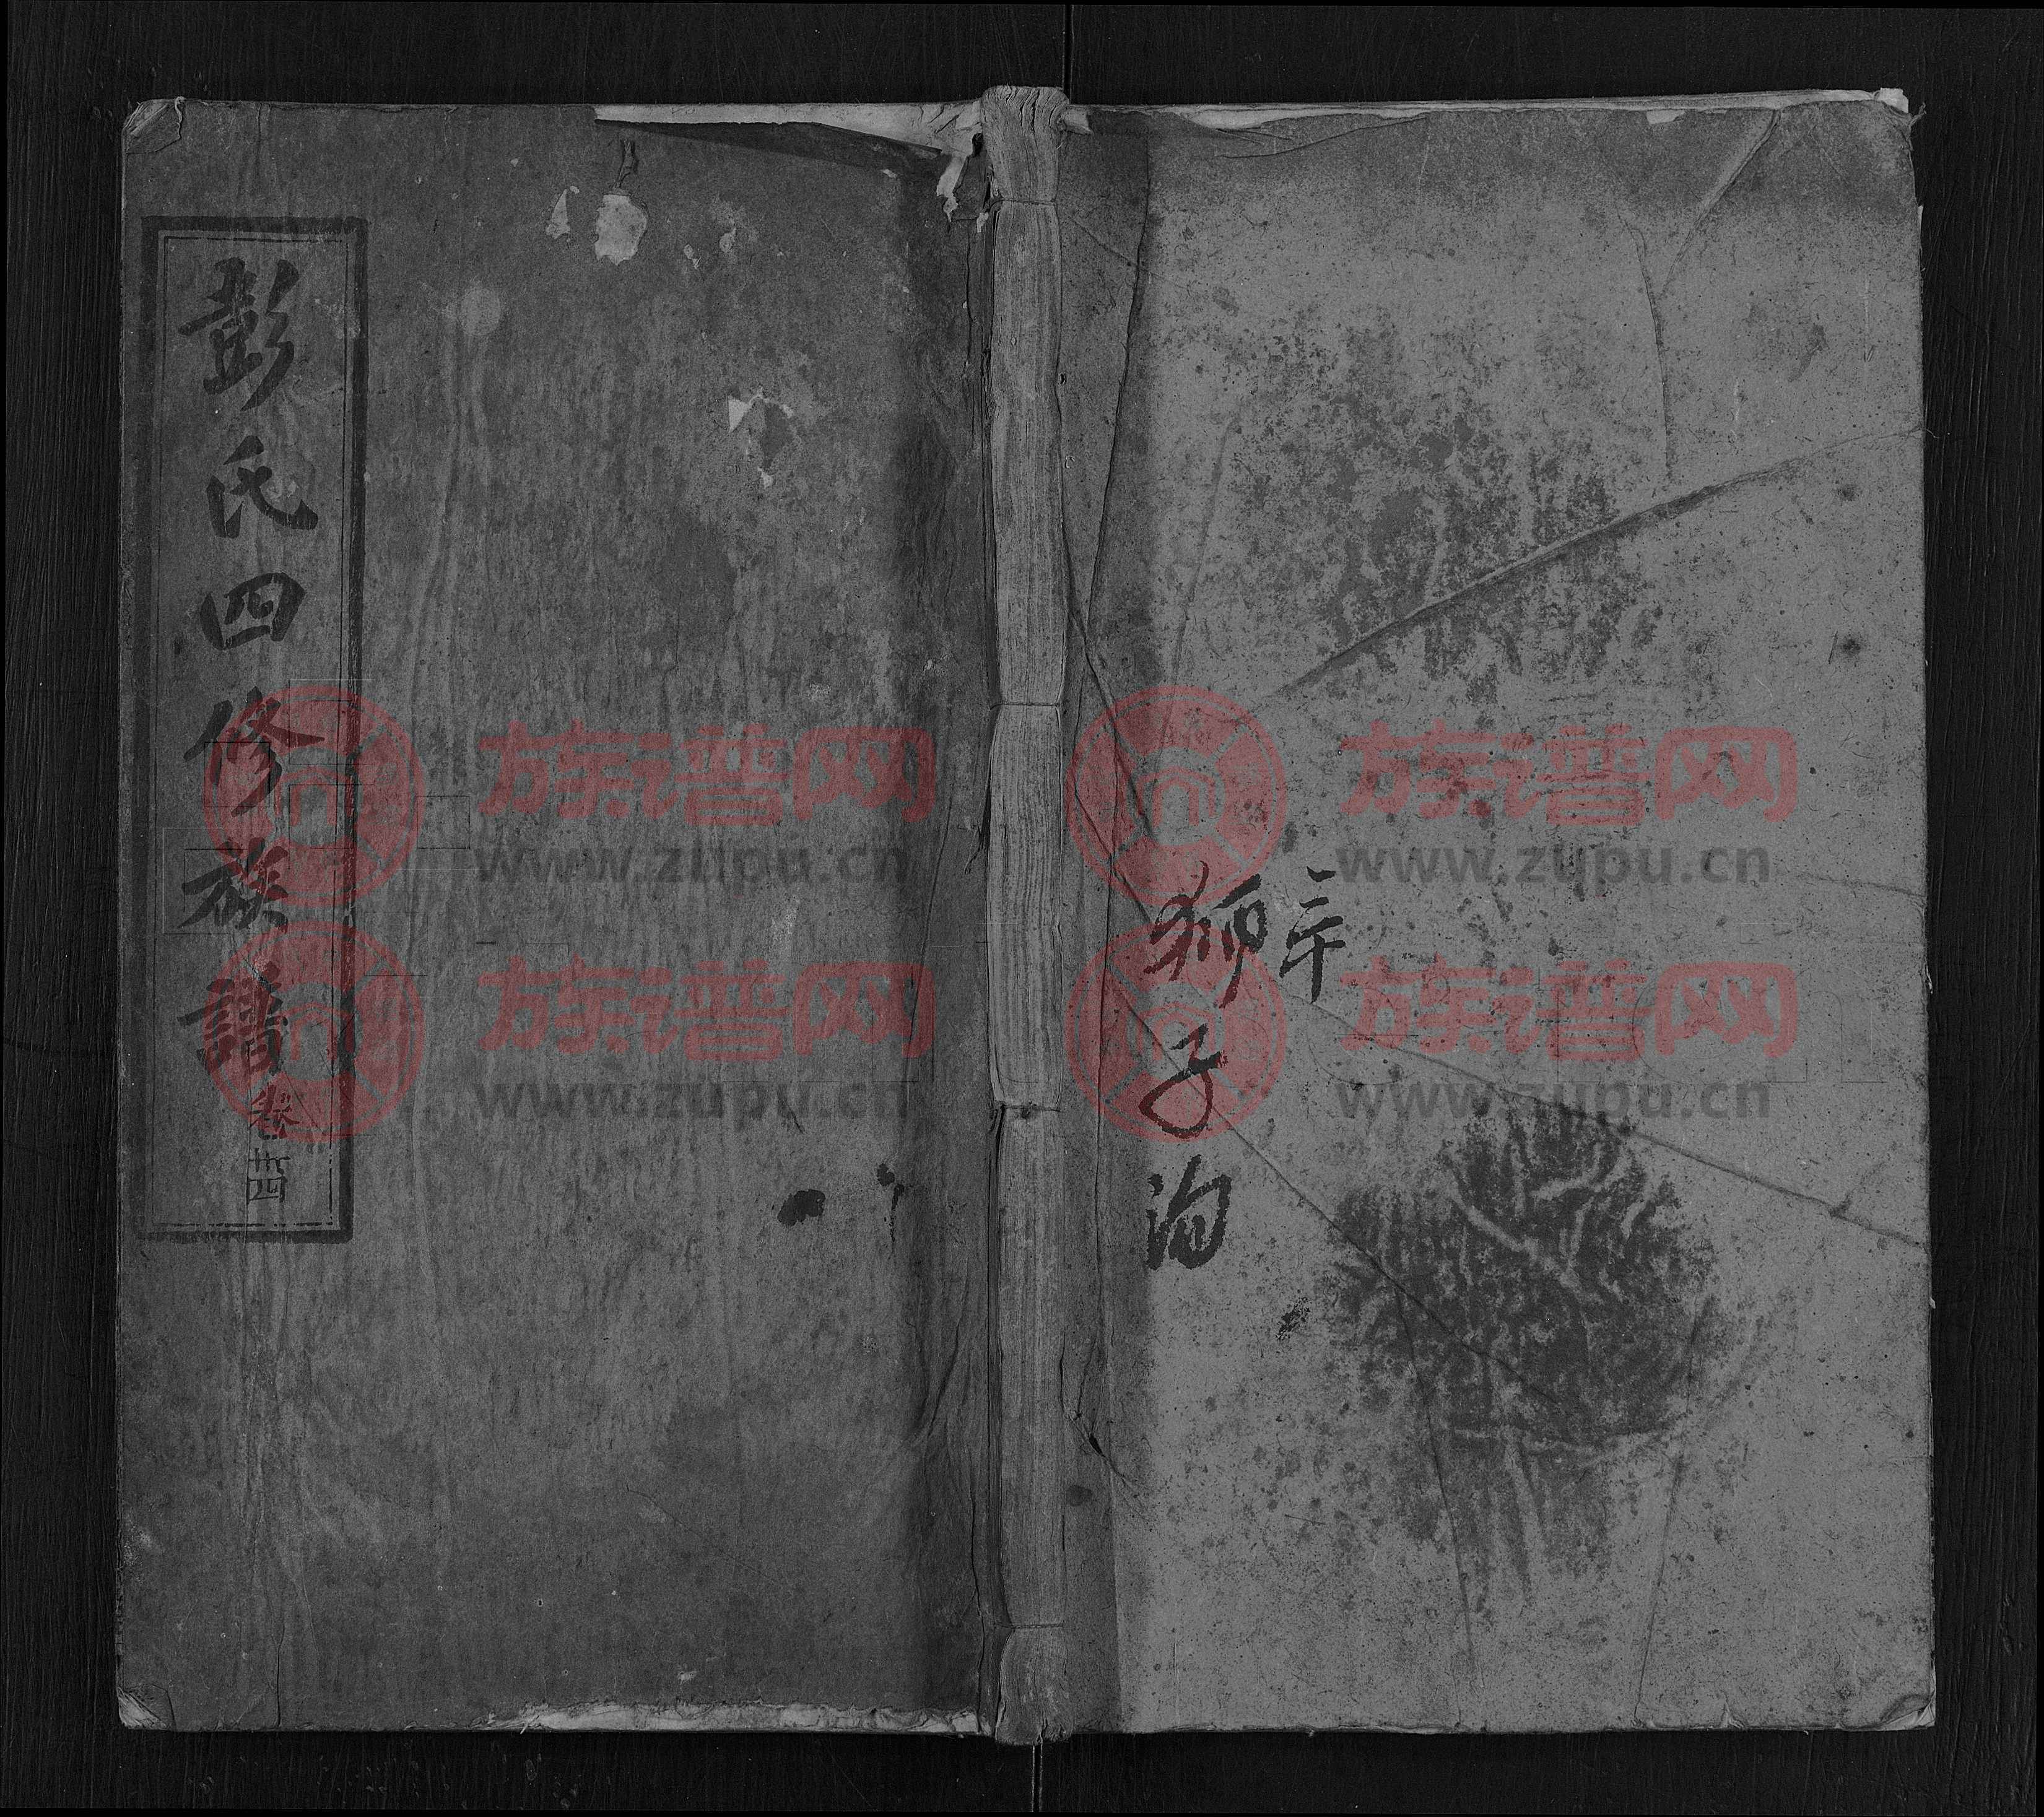 彭氏四修族譜 卷廿四
獅子
族谱网
www.zupu.cn
族谱网
www.zupu.cn
族谱网
www.zupu.cn
族谱网
www.zupu.cn